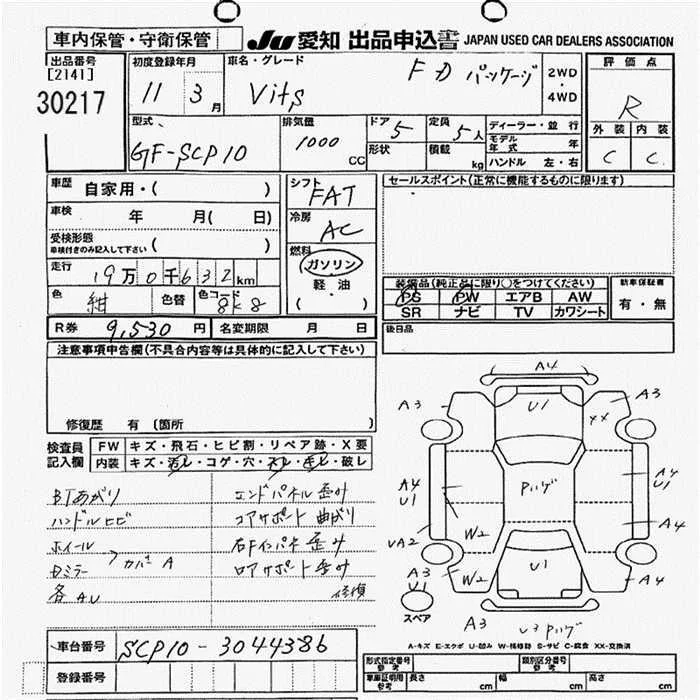 車内保管・守衛保管
JU 愛知 出品申込書 JAPAN USED CAR DEALERS ASSOCIATION
出品番号
[2141]
30217
初度登録年月
11 3月
車名・グレード
Vits FD パッケージ
2WD
・
4WD
評価点
R
外装 内装
C C
型式
GF-SCP10
排気量
1000 CC
ドア 5
形状
定員 5人
積載 kg
ディーラー・並行
モデル年式 年
ハンドル 左・右
車歴 自家用・( )
車検 年 月( 日)
受検形態
車検付きのみ記入して下さい ( )
走行 19万0千632km
色 紺 色替 色コード 8K8
シフト FAT
冷房 AC
燃料
ガソリン
軽・油
( )
セールスポイント(正常に機能するものに限ります)
装備品(純正品に限り○をつけてください)
PS PW エアB AW
SR ナビ TV カワシート
新車保証書
有・無
R券 9,530円 名変期限 月 日
後日品
注意事項申告欄(不具合内容等は具体的に記入して下さい)
修復歴 有 〔箇所 〕
検査員
記入欄
FW キズ・飛石・ヒビ割・リペア跡・X要
内装 キズ・汚レ・コゲ・穴・スレ・キレ・破レ
BTあがり エンドパネル歪み
ハンドルヒビ コアサポート曲がり
ホイール 右Fインパネ歪み
ドミラー カバーA ロアサポート歪み
各AU 修復
A4
A3
U1
A3
XX
A4
U1
Pハゲ
A4
U1
A4
W2
UA2
W2
U1
A3
U1
A4
スペア
A3
U3 Pハゲ
A-キズ E-エクボ U-凹み W-補修跡 S-サビ C-腐食 XX-交換済
車台番号 SCP10-3044386
登録番号
形式指定番号
参考
類別区分番号
参考
車庫証明用
参考
長さ cm 幅 cm 高さ cm